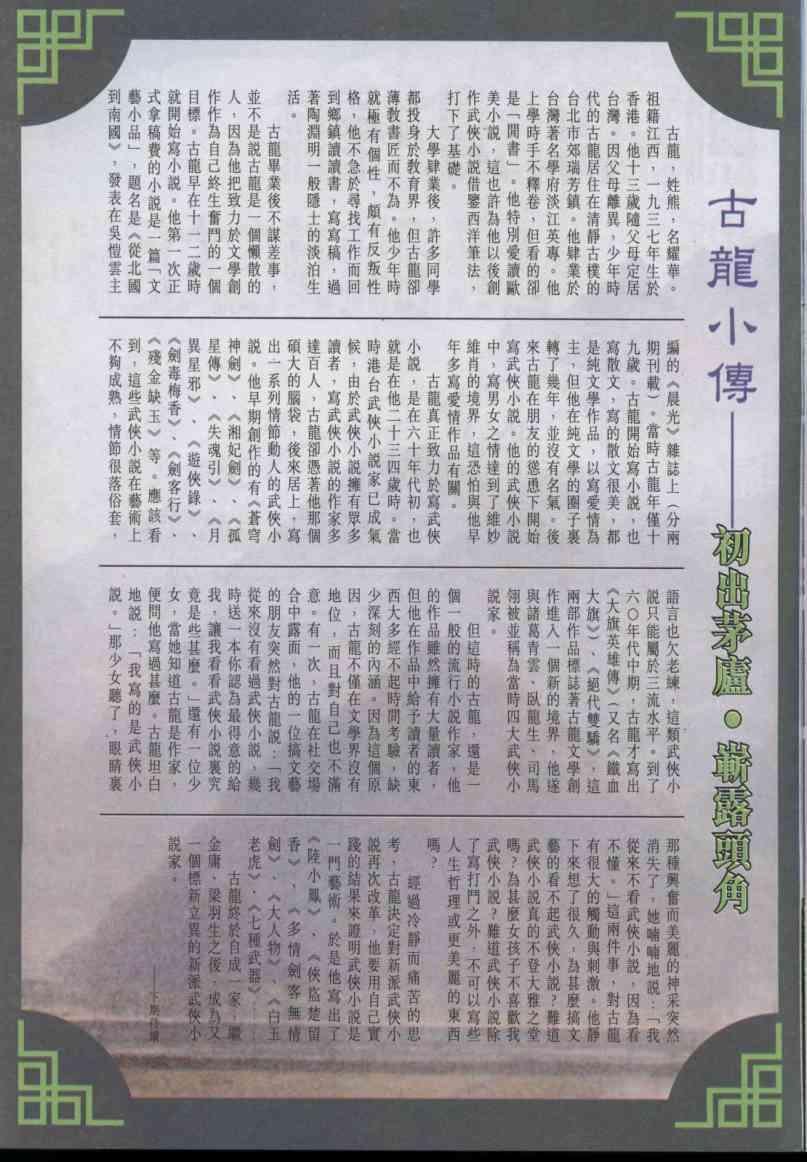 古龍小傳——初出茅廬•嶄露頭角
古龍，姓熊，名耀華。
祖籍江西，一九三七年生於
香港。他十三歲隨父母定居
台灣。因父母離異，少年時
代的古龍居住在清靜古樸的
台北市郊瑞芳鎮。他肄業於
台灣著名學府淡江英專。他
上學時手不釋卷，但看的卻
是「閒書」。他特別愛讀歐
美小說，這也許為他以後創
作武俠小說借鑒西洋筆法，
打下了基礎。
大學肄業後，許多同學
都投身於教育界，但古龍卻
薄教書匠而不為。他少年時
就極有個性，頗有反叛性
格，他不急於尋找工作而回
到鄉鎮讀讀書，寫寫稿，過
著陶淵明一般隱士的淡泊生
活。
古龍畢業後不謀差事，
並不是說古龍是一個懶散的
人，因為他把致力於文學創
作作為自己終生奮鬥的一個
目標。古龍早在十一二歲時
就開始寫小說。他第一次正
式拿稿費的小說是一篇「文
藝小品」，題名是《從北國
到南國》，發表在吳愷雲主
編的《晨光》雜誌上（分兩
期刊載）。當時古龍年僅十
九歲。古龍開始寫小說，也
寫散文，寫的散文很美，都
是純文學作品，以寫愛情為
主，但他在純文學的圈子裏
轉了幾年，並沒有名氣。後
來古龍在朋友的慫恿下開始
寫武俠小說。他的武俠小說
中，寫男女之情達到了維妙
維肖的境界，這恐怕與他早
年多寫愛情作品有關。
古龍真正致力於寫武俠
小說，是在六十年代初，也
就是在他二十三四歲時。當
時港台武俠小說家已成氣
候，由於武俠小說擁有眾多
讀者，寫武俠小說的作家多
達百人，古龍卻憑著他那個
碩大的腦袋，後來居上，寫
出一系列情節動人的武俠小
說。他早期創作的有《蒼穹
神劍》、《湘妃劍》、《孤
星傳》、《失魂引》、《月
異星邪》、《遊俠錄》、
《劍毒梅香》、《劍客行》、
《殘金缺玉》等。應該看
到，這些武俠小說在藝術上
不夠成熟，情節很落俗套，
語言也欠老練，這類武俠小
說只能屬於三流水平。到了
六○年代中期，古龍才寫出
《大旗英雄傳》（又名《鐵血
大旗》）、《絕代雙驕》，這
兩部作品標誌著古龍文學創
作進入一個新的境界，他遂
與諸葛青雲、臥龍生、司馬
翎被並稱為當時四大武俠小
說家。
但這時的古龍，還是一
個一般的流行小說作家，他
的作品雖然擁有大量讀者，
但他在作品中給予讀者的東
西大多經不起時間考驗，缺
少深刻的內涵。因為這個原
因，古龍不僅在文學界沒有
地位，而且對自己也不滿
意。有一次，古龍在社交場
合中露面，他的一位搞文藝
的朋友突然對古龍說：「我
從來沒有看過武俠小說，幾
時送一本你認為最得意的給
我，讓我看看武俠小說裏究
竟是些甚麼。」還有一位少
女，當她知道古龍是作家，
便問他寫過甚麼。古龍坦白
地說：「我寫的是武俠小
說。」那少女聽了，眼睛裏
那種興奮而美麗的神采突然
消失了，她喃喃地說：「我
從來不看武俠小說，因為看
不懂。」這兩件事，對古龍
有很大的觸動與刺激。他靜
下來想了很久，為甚麼搞文
藝的看不起武俠小說？難道
武俠小說真的不登大雅之堂
嗎？為甚麼女孩子不喜歡我
武俠小說？難道武俠小說除
了寫打鬥之外，不可以寫些
人生哲理或更美麗的東西
嗎？
經過冷靜而痛苦的思
考，古龍決定對新派武俠小
說再次改革，他要用自己實
踐的結果來證明武俠小說是
一門藝術。於是他寫出了
《陸小鳳》、《俠盜楚留
香》、《多情劍客無情
劍》、《大人物》、《白玉
老虎》、《七種武器》……
古龍終於自成一家，繼
金庸、梁羽生之後，成為又
一個標新立異的新派武俠小
說家。
——下期待續